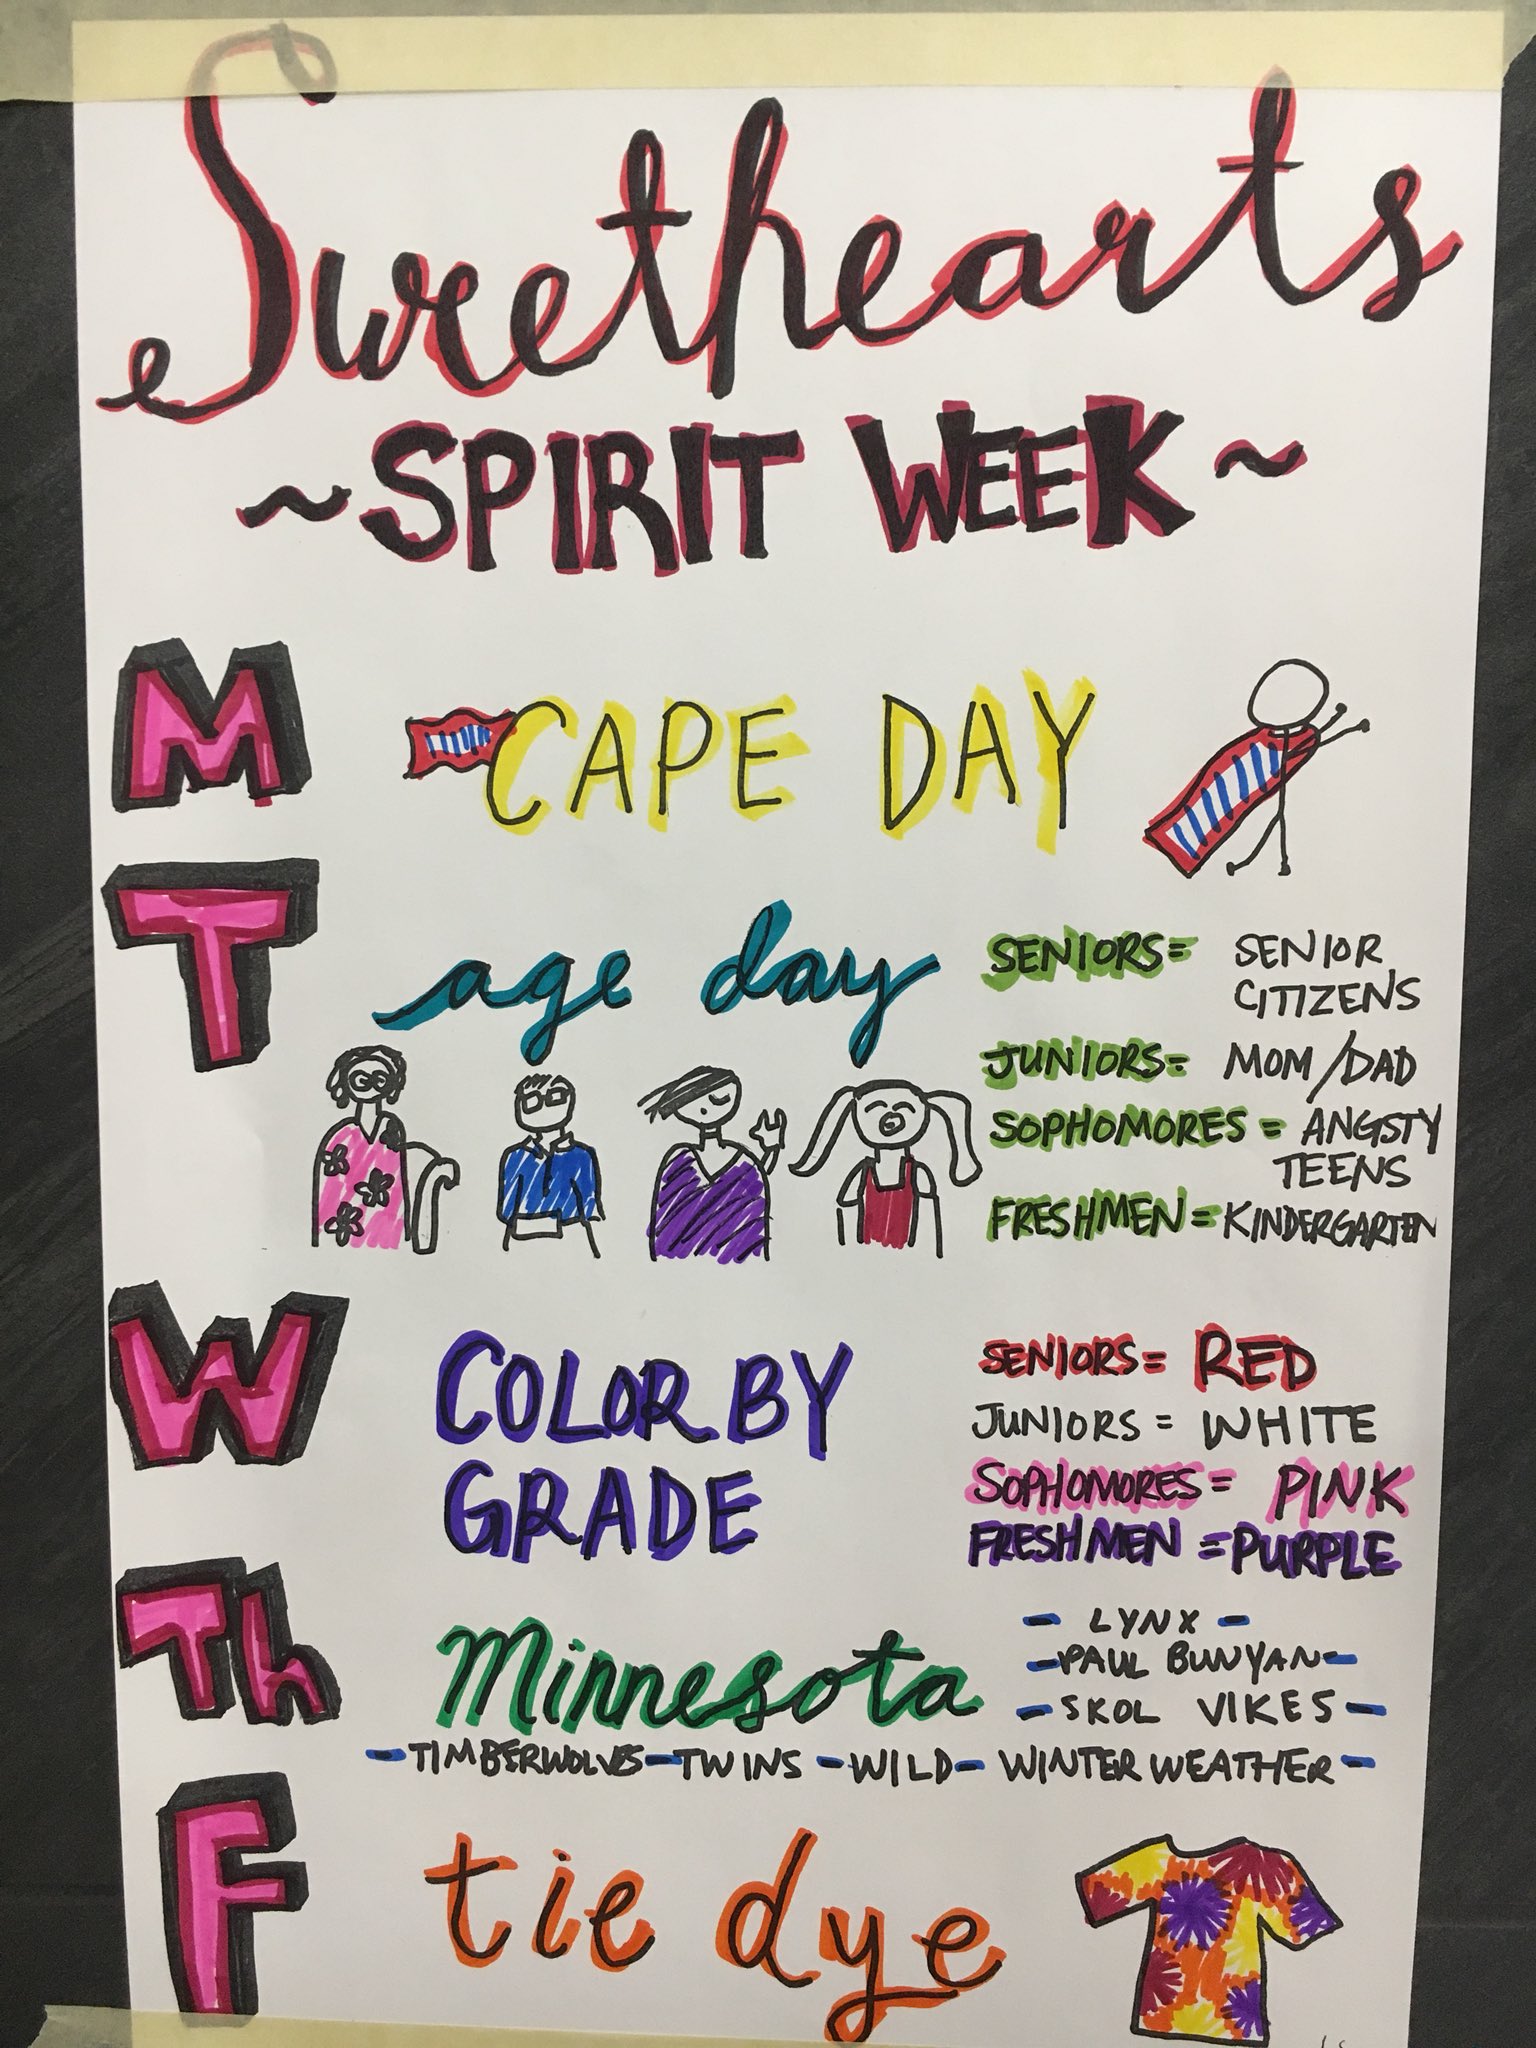 Swethearts
~SPIRIT WEEK~
M CAPE DAY
T age day
SENIORS= SENIOR CITIZENS
JUNIORS= MOM/DAD
SOPHOMORES = ANGSTY TEENS
FRESHMEN = KINDERGARTEN
W COLOR BY GRADE
SENIORS = RED
JUNIORS = WHITE
SOPHOMORES = PINK
FRESHMEN = PURPLE
Th Minnesota
- LYNX -
- PAUL BUNYAN -
- SKOL VIKES -
- TIMBERWOLVES - TWINS - WILD - WINTER WEATHER -
F tie dye